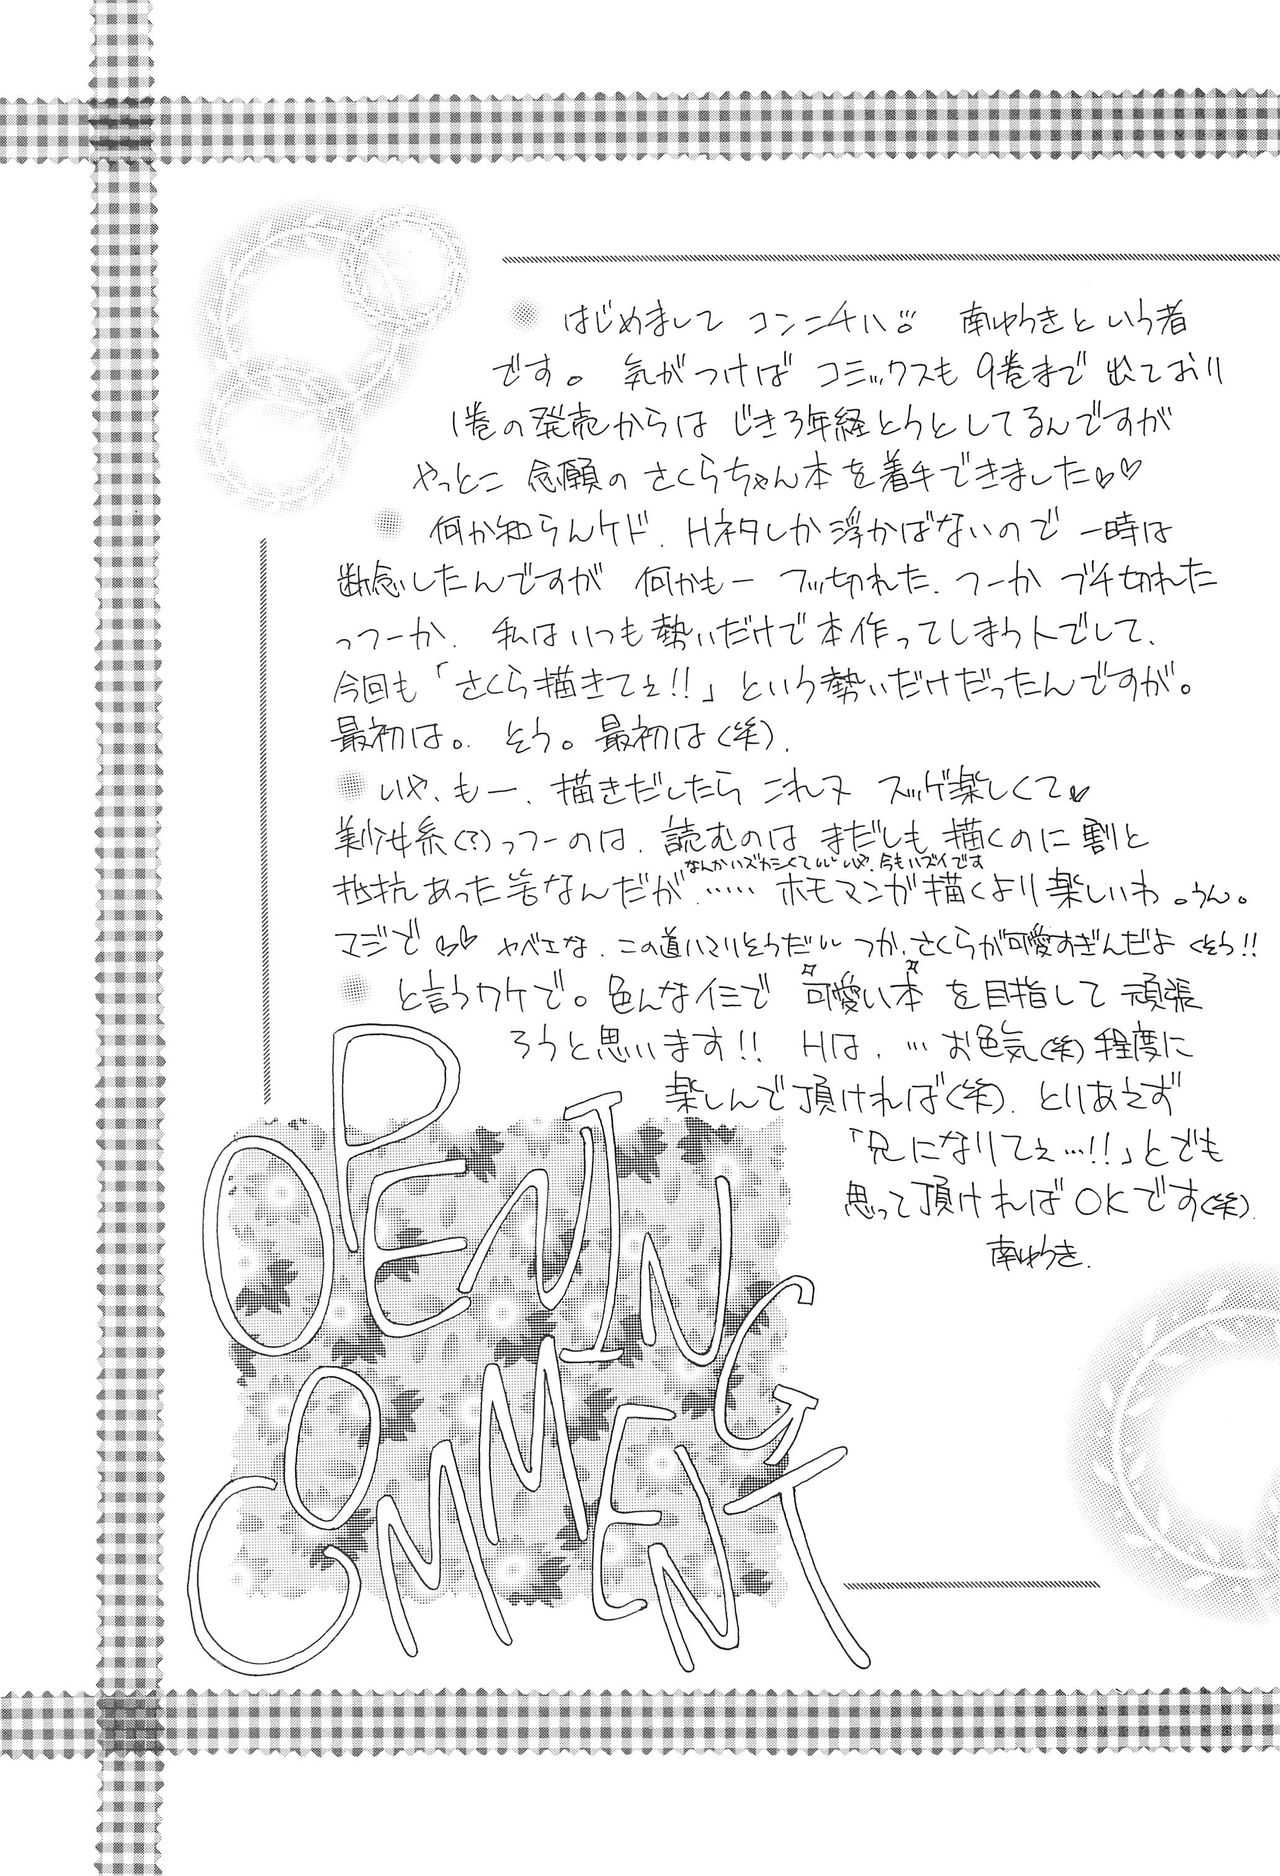 はじめまして コンニチハ 南ゆうきという者
です。気がつけば コミックスも 9巻まで 出ており
1巻の発売からは じき3年経とうとしてるんですが
やっとこ 念願の さくらちゃん本を着手できました♡♡
何か知らんケド、Hネタしか浮かばないので 一時は
断念したんですが 何かもー フッ切れた、つーか ブチ切れた
っつーか、私はいつも勢いだけで本作ってしまう人でして、
今回も「さくら描きてぇ!!」という勢いだけだったんですが。
最初は。そう。最初は(笑)、
いや、もー、描きだしたら これヌ スッゲ楽しくて♡
美少女系(?)っつーのは、読むのは まだしも 描くのに 割と
なんかハズカシくて いや、今もハズイです
抵抗あった筈なんだが、…… ホモマンガ描くより楽しいわ。うん。
マジで♡♡ ヤベェな、この道ハマりそうだ つか、さくらが可愛すぎんだよ くそう!!
と言うワケで。色んなイミで 可愛い本 を目指して 頑張
ろうと思います!! Hは、…お色気(笑)程度に
楽しんで頂ければ(笑)、とりあえず
「兄になりてぇ…!!」とでも
思って頂ければOKです(笑).
南ゆうき.
OPENING
COMMENT